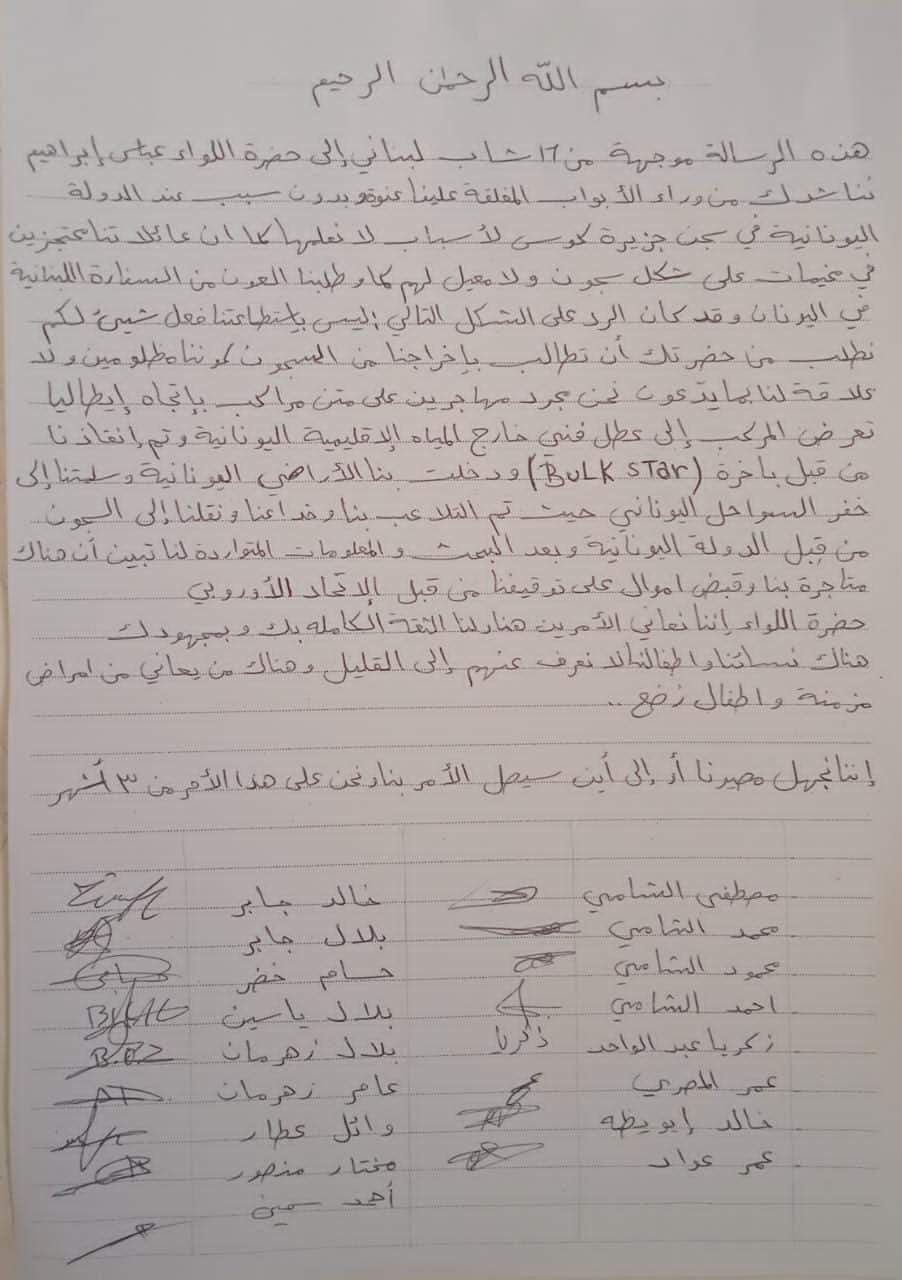 بسم الله الرحمن الرحيم
هذه الرسالة موجهة من ١٧ شاب لبناني إلى حضرة اللواء عباس إبراهيم
نناشدك من وراء الأبواب المغلقة علينا عنوة وبدون سبب عند الدولة
اليونانية في سجن جزيرة كوس لأسباب لا نعلمها كما ان عائلاتنا محتجزين
في مخيمات على شكل سجون ولا معيل لهم كما وطلبنا العون من السفارة اللبنانية
في اليونان وقد كان الرد على الشكل التالي: ليس بإستطاعتنا فعل شيئ لكم
نطلب من حضرتك أن تطالب بإخراجنا من السجون كوننا مظلومين ولا
علاقة لنا بما يدّعون نحن مجرد مهاجرين على متن مراكب بإتجاه إيطاليا
تعرض المركب إلى عطل فني خارج المياه الإقليمية اليونانية وتم إنقاذنا
من قبل باخرة (BULK STar) ودخلت بنا الأراضي اليونانية وسلمتنا إلى
خفر السواحل اليوناني حيث تم التلاعب بنا وخداعنا ونقلنا إلى السجون
من قِبل الدولة اليونانية وبعد البحث والمعلومات المتواردة لنا تبين أن هناك
متاجرة بنا وقبض اموال على توقيفنا من قبل الإتحاد الأوروبي
حضرة اللواء إننا نعاني الأمرين هنا ولنا الثقة الكامله بك وبمجهودك
هناك نسائنا واطفالنا لا نعرف عنهم إلى القليل وهناك من يعاني من امراض
مزمنة واطفال رُضع..
إننا نجهل مصيرنا أو إلى أين سيصل الأمر بنا ونحن على هذا الأمر من ٣ أشهر
مصطفى الشامي خالد جابر
محمد الشامي بلال جابر
محمود الشامي حسام خضر
احمد الشامي بلال ياسين
زكريا عبد الواحد زكريا بلال زهرمان
عمر المصري عامر زهرمان
خالد وائل عطار
عمر عواد مختار منصور
أحمد